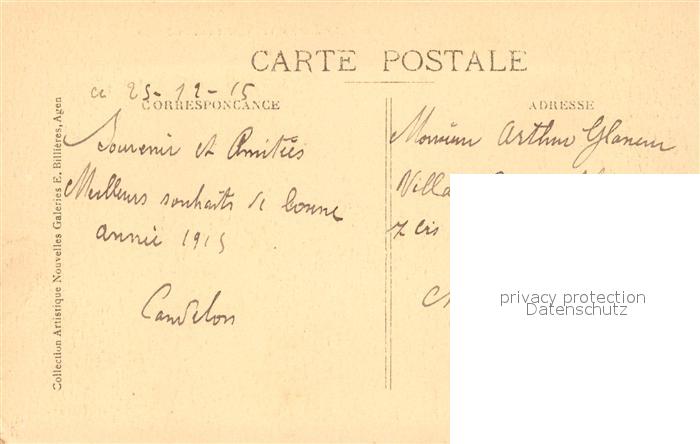 CARTE POSTALE
ce 25-12-15
CORRESPONDANCE
Souvenir et Amitiés
Meilleurs souhaits de bonne
année 1915
Candelon
ADRESSE
Monsieur Arthur
Villa
7 bis
privacy protection
Datenschutz
Collection Artistique Nouvelles Galeries E. Billières, Agen